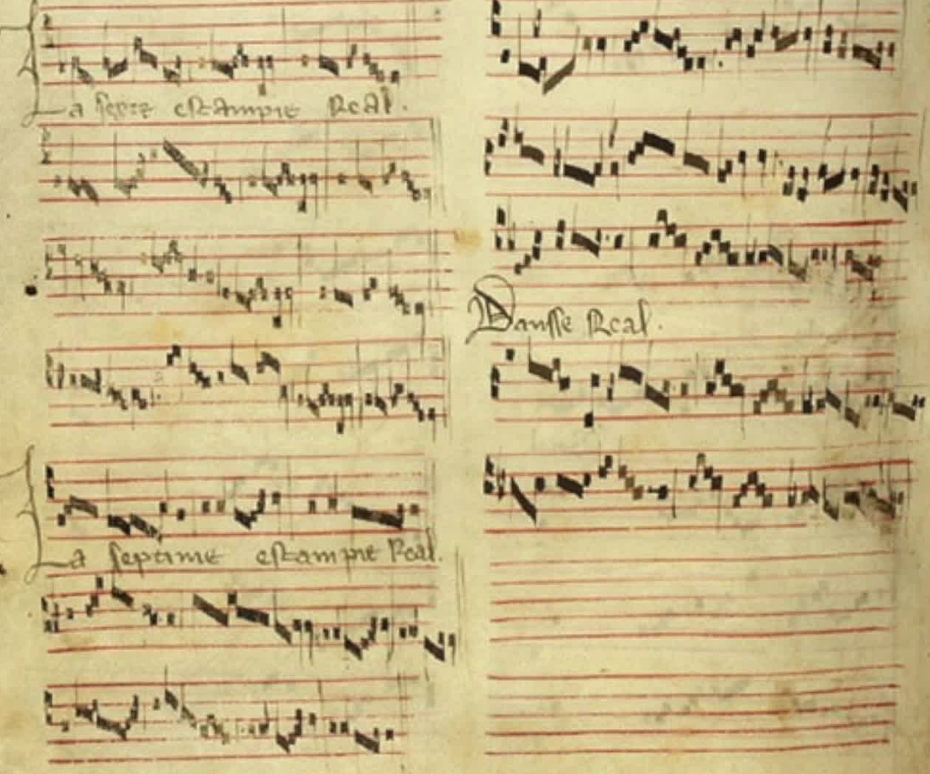 La sexte estampie Real.
La septime estampie Real.
Dansse Real.